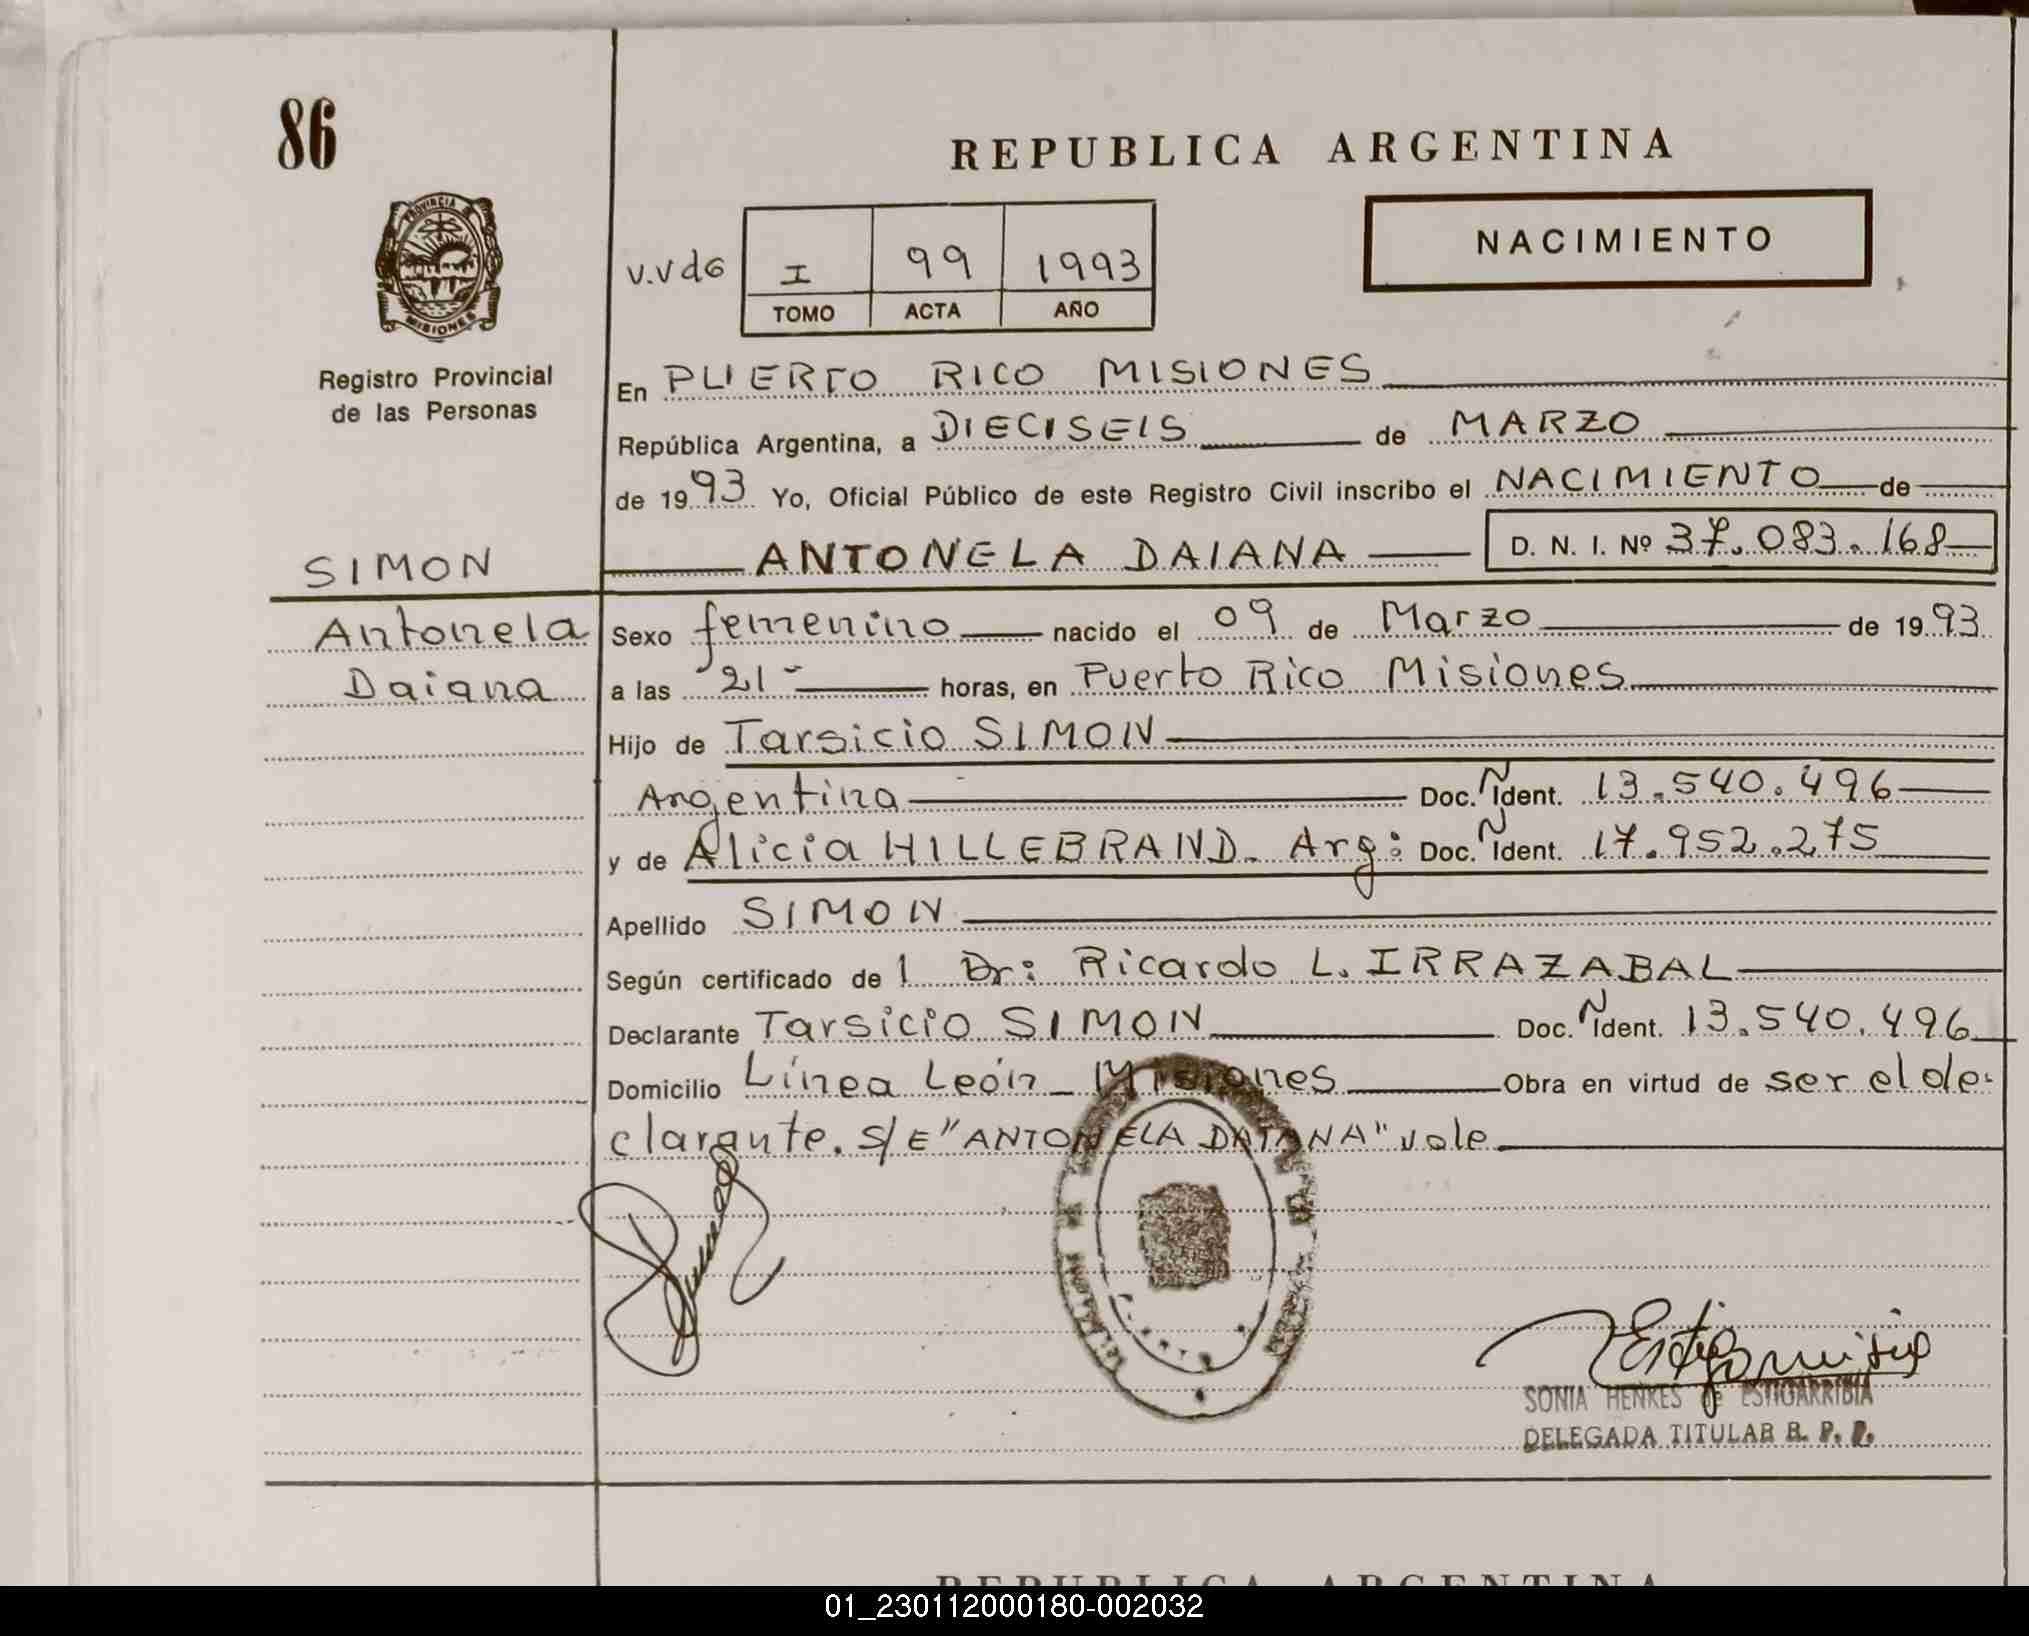 86
REPUBLICA ARGENTINA
PROVINCIA D
MISIONES
Registro Provincial
de las Personas
V.Vdo
I 99 1993
TOMO ACTA AÑO
NACIMIENTO
En PUERTO RICO MISIONES
República Argentina, a DIECISEIS de MARZO
de 1993 Yo, Oficial Público de este Registro Civil inscribo el NACIMIENTO de
SIMON
ANTONELA DAIANA D. N. I. Nº 37.083.168
Antonela
Daiana
Sexo femenino nacido el 09 de Marzo de 1993
a las 21- horas, en Puerto Rico Misiones
Hijo de Tarsicio SIMON
Argentina Doc. Ñ Ident. 13.540.496
y de Alicia HILLEBRAND. Arg: Doc. Ñ Ident. 17.952.275
Apellido SIMON
Según certificado de l Dr: Ricardo L. IRRAZABAL
Declarante Tarsicio SIMON Doc. Ñ Ident. 13.540.496
Domicilio Línea León - Misiones Obra en virtud de ser el de-
clarante. S/E "ANTONELA DAIANA" vale
SONIA HENKES de ESTIGARRIBIA
DELEGADA TITULAR R. P. P.
REPUBLICA ARGENTINA
01_230112000180-002032